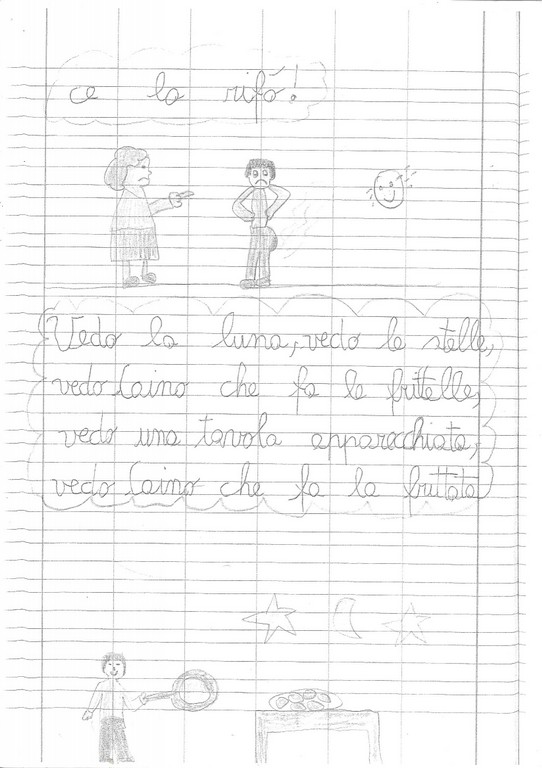 ce la rifò!
Vedo la luna, vedo le stelle,
vedo Caino che fa le frittelle,
vedo una tavola apparacchiata,
vedo Caino che fa la fruttata